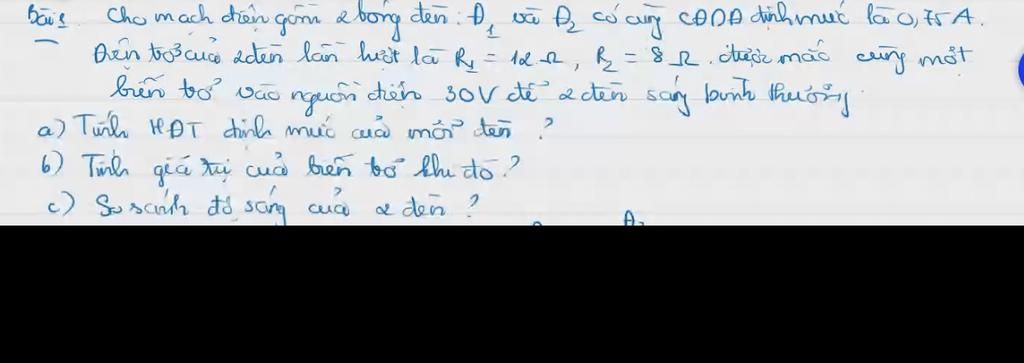 Bài 1. Cho mạch điện gồm 2 bóng đèn: Đ1 và Đ2 có cùng CĐDĐ định mức là 0,75 A.
Điện trở của 2 đèn lần lượt là R1 = 12 Ω, R2 = 8 Ω. được mắc cùng một
biến trở vào nguồn điện 30V để 2 đèn sáng bình thường
a) Tính HĐT định mức của mỗi đèn ?
b) Tính giá trị của biến trở khi đó ?
c) So sánh độ sáng của 2 đèn ?